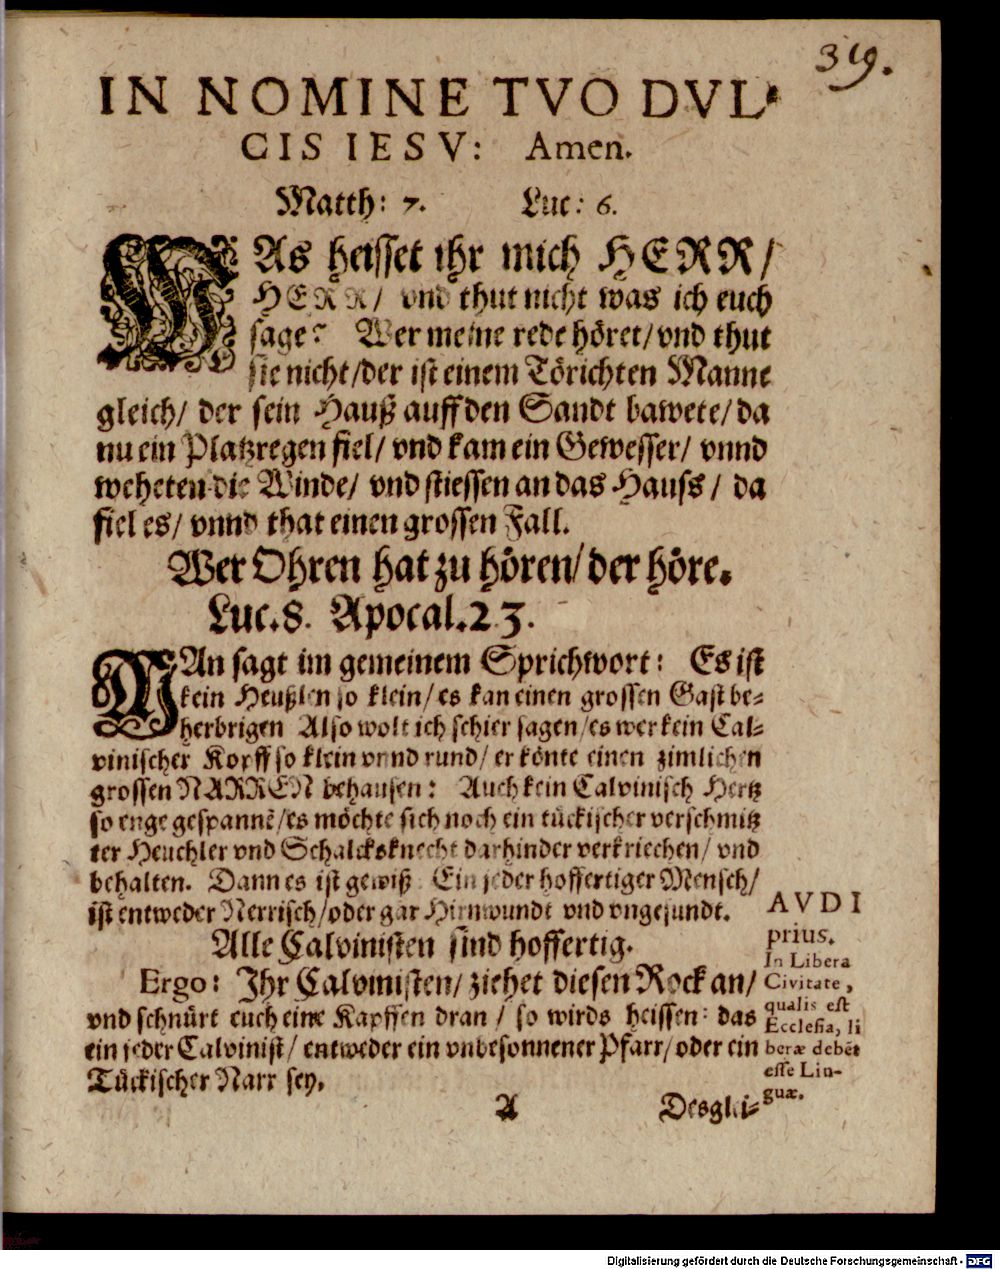 319.
IN NOMINE TVO DVL-
CIS IESV: Amen.
Matth: 7. Luc: 6.
WAs heisset ihr mich HERR/
HERR/ vnd thut nicht was ich euch
sage? Wer meine rede höret/vnd thut
sie nicht/der ist einem Törichten Manne
gleich/ der sein Hauß auff den Sandt bawete/da
nu ein Platzregen fiel/ vnd kam ein Gewesser/ vnnd
weheten die Winde/ vnd stiessen an das Hauss/ da
fiel es/ vnnd that einen grossen Fall.
Wer Ohren hat zu hören/der höre.
Luc.8. Apocal.2 3.
MAn sagt im gemeinem Sprichwort: Es ist
kein Heußlen so klein/es kan einen grossen Gast be-
herbrigen Also wolt ich schier sagen/es wer kein Cal-
vinischer Kopff so klein vnnd rund/ er könte einen zimlichen
grossen NARREN behausen: Auch kein Calvinisch Hertz
so enge gespannẽ/es möchte sich noch ein tückischer verschmitz
ter Heuchler vnd Schalcksknecht darhinder verkriechen/ vnd
behalten. Dann es ist gewiß Ein jeder hoffertiger Mensch/
ist entweder Nerrisch/oder gar Hirnwundt vnd vngesundt.
Alle Calvinisten sind hoffertig.
Ergo: Ihr Calvinisten/ ziehet diesen Rock an/
vnd schnürt euch eine Kapffen dran / so wirds heissen: das
ein jeder Calvinist/ entweder ein vnbesonnener Pfarr/oder ein
Tückischer Narr sey.
AVDI
prius.
In Libera
Civitate,
qualis est
Ecclesia, li
beræ debẽt
esse Lin-
guæ.
A Desglei-
Digitalisierung gefördert durch die Deutsche Forschungsgemeinschaft - DFG